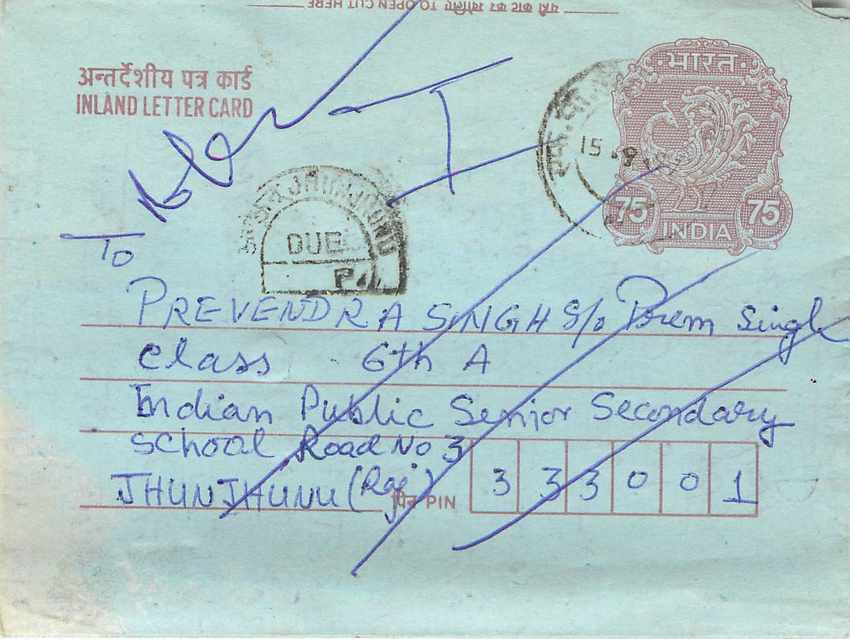 यहाँ काट कर खोलिए TO OPEN CUT HERE
अन्तर्देशीय पत्र कार्ड
INLAND LETTER CARD
भारत
75 75
INDIA
15 .9
JHUNJHUNU
DUE
To
PREVENDRA SINGH S/o Prem Singh
Class 6th A
Indian Public Senior Secondary
School Road No 3
JHUNJHUNU (Raj) पिन PIN 333001